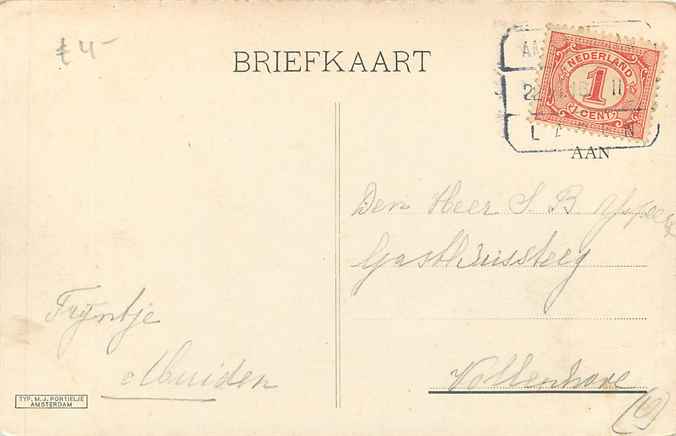 £ 4-
BRIEFKAART
NEDERLAND
1
CENT
AAN
Den Heer S. B.
Gasthuissteeg
Vollenhove
Fijntje
Muiden
TYP. M. J. PORTIELJE
AMSTERDAM